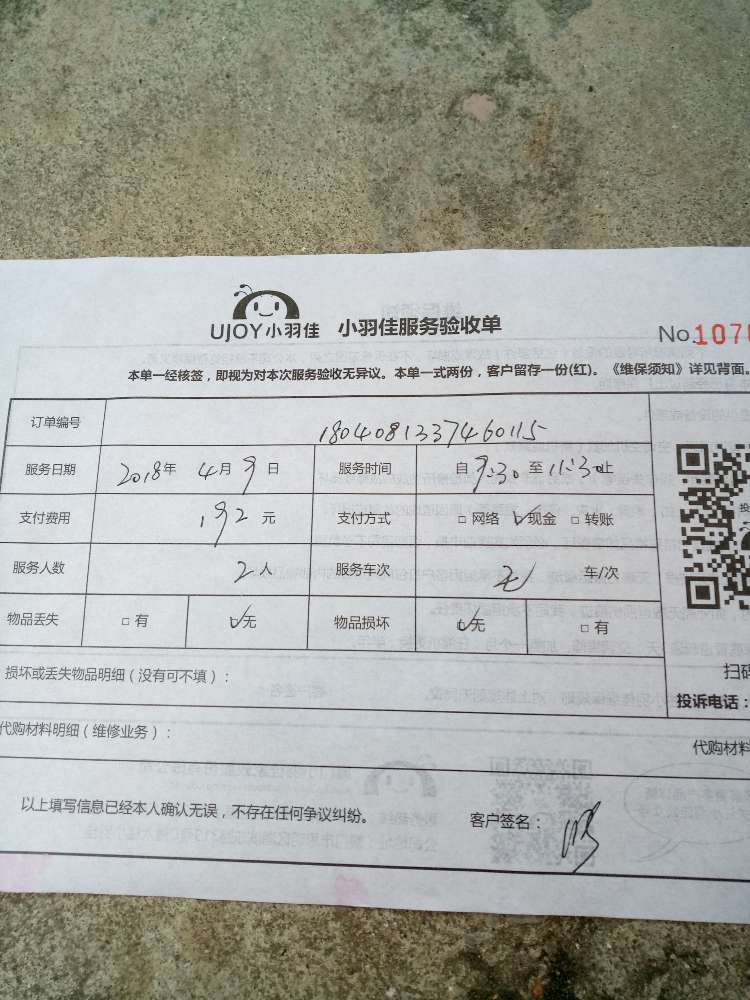 UJOY小羽佳 小羽佳服务验收单
No.107
本单一经核签，即视为对本次服务验收无异议。本单一式两份，客户留存一份(红)。《维保须知》详见背面。
订单编号 1804081337460115
服务日期 2018年 4月 9日 服务时间 自9:30至11:30止
支付费用 192元 支付方式 □网络 ☑现金 □转账
服务人数 2人 服务车次 无 车/次
物品丢失 □有 ☑无 物品损坏 ☑无 □有
损坏或丢失物品明细（没有可不填）：
扫码
投诉电话：
代购材料明细（维修业务）：
代购材料
以上填写信息已经本人确认无误，不存在任何争议纠纷。 客户签名：